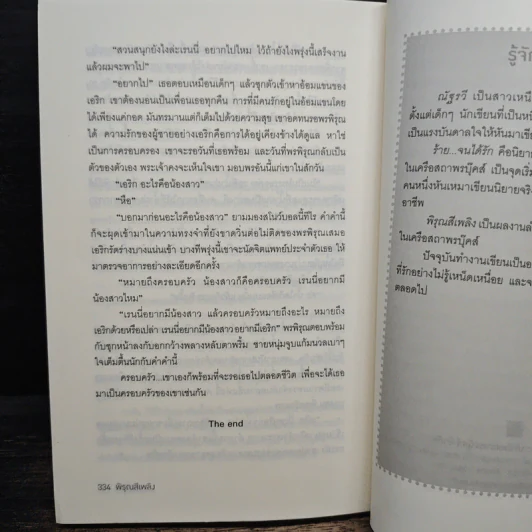 "สวนสนุกยังไงล่ะเรนนี่ อยากไปไหม ไว้ถ้ายังไงพรุ่งนี้เสร็จงาน
แล้วผมจะพาไป"
"อยากไป" เธอตอบเหมือนเด็กๆ แล้วซุกตัวเข้าหาอ้อมแขนของ
เอริก เขาต้องนอนเป็นเพื่อนเธอทุกคืน การที่มีคนรักอยู่ในอ้อมแขนโดย
ได้เพียงแค่กอด มันทรมานแต่ก็เต็มไปด้วยความสุข เขาอดทนรอพรพิรุณ
ได้ ความรักของผู้ชายอย่างเอริกคือการได้อยู่เคียงข้างได้ดูแล หาใช่
เป็นการครอบครอง เขาจะรอวันที่เธอพร้อม และวันที่พรพิรุณกลับเป็น
ตัวของตัวเอง พระเจ้าคงจะเห็นใจเขา มอบพรอันนี้แก่เขาในสักวัน
"เอริก อะไรคือน้องสาว"
"หือ"
"บอกมาก่อนอะไรคือน้องสาว" ยามมองสโนว์บอลนี้ทีไร คำคำนี้
ก็จะผุดเข้ามาในความทรงจำที่ยังขาดวิ่นต่อไม่ติดของพรพิรุณเสมอ
เอริกรัดร่างบางแน่นเข้า บางทีพรุ่งนี้เขาจะนัดจิตแพทย์ประจำตัวเธอ ให้
มาตรวจอาการอย่างละเอียดอีกครั้ง
"หมายถึงครอบครัว น้องสาวก็คือครอบครัว เรนนี่อยากมี
น้องสาวไหม"
"เรนนี่อยากมีน้องสาว แล้วครอบครัวหมายถึงอะไร หมายถึง
เอริกด้วยหรือเปล่า เรนนี่อยากมีน้องสาวอยากมีเอริก" พรพิรุณตอบพร้อม
กับซุกหน้าลงกับอกกว้างพลางหลับตาพริ้ม ชายหนุ่มจูบแก้มนวลเบาๆ
ใจเต้มตื้นนักกับคำคำนี้
ครอบครัว...เขาเองก็พร้อมที่จะรอเธอไปตลอดชีวิต เพื่อจะได้เธอ
มาเป็นครอบครัวของเขาเช่นกัน
The end
334 พิรุณสีเพลิง
รู้จัก
ณัฐรวี เป็นสาวเหนือ
ตั้งแต่เด็กๆ นักเขียนที่เป็น
เป็นแรงบันดาลใจให้หันมาเขียน
ร้าย...จนได้รัก คือนิยาย
ในเครือสถาพรบุ๊คส์ เป็นจุดเริ่ม
คนหนึ่งหันเหมาเขียนนิยายจริง
อาชีพ
พิรุณสีเพลิง เป็นผลงานลำ
ในเครือสถาพรบุ๊คส์
ปัจจุบันทำงานเขียนเป็น
ที่รักอย่างไม่รู้เหน็ดเหนื่อย และจ
ตลอดไป